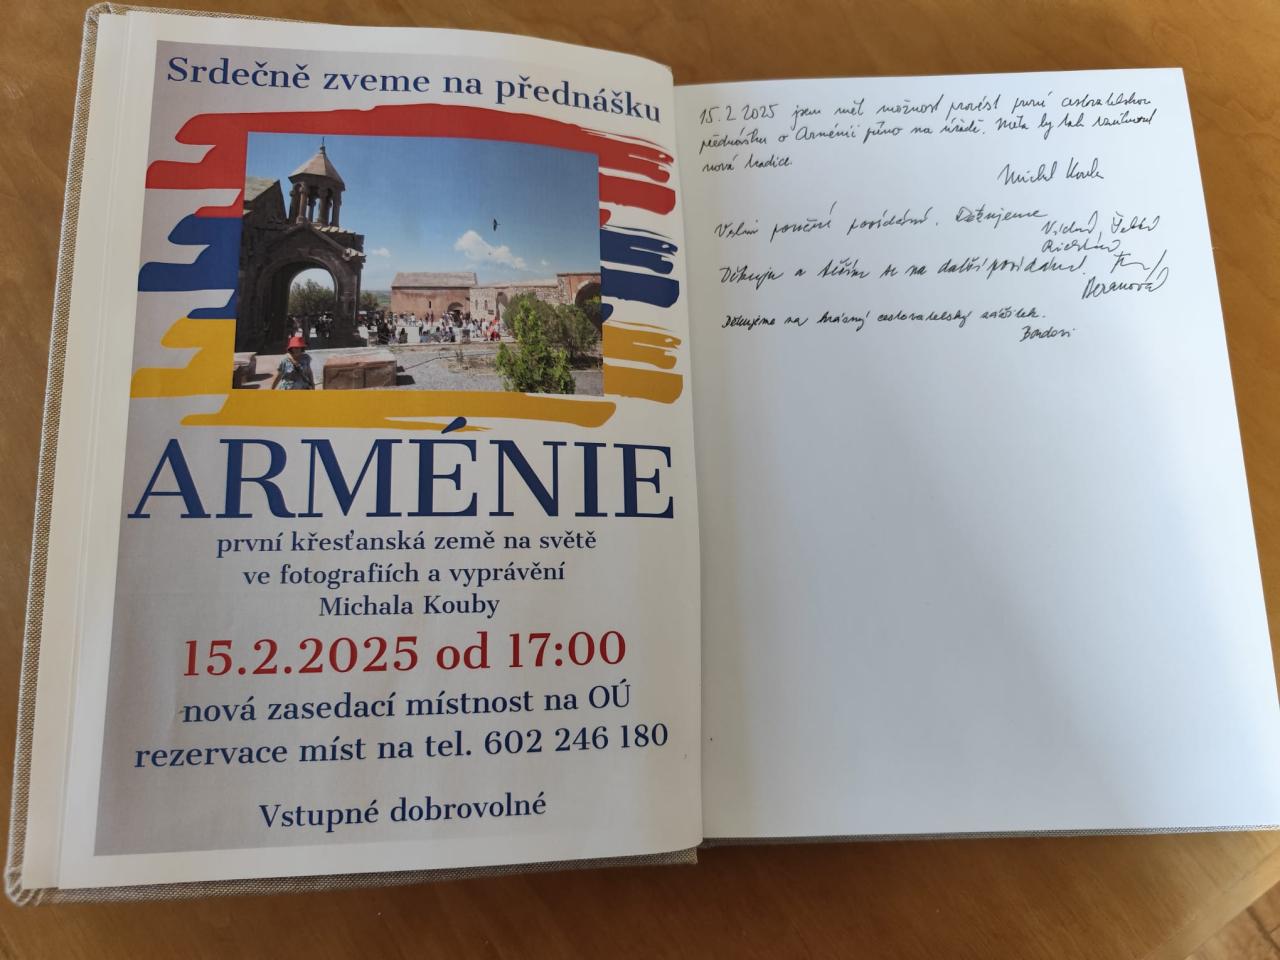 Srdečně zveme na přednášku
ARMÉNIE
první křesťanská země na světě
ve fotografiích a vyprávění
Michala Kouby
15.2.2025 od 17:00
nová zasedací místnost na OÚ
rezervace míst na tel. 602 246 180
Vstupné dobrovolné
15.2.2025 jsem měl možnost provést první cestovatelskou
přednášku o Arménii přímo na úřadě. Měla by tak vzniknout
nová tradice.
Michal Kouba
Velmi poučné povídání. Děkujeme
Děkuju a těším se na další povídání.
Beranová
Děkujeme za krásný cestovatelský zážitek.